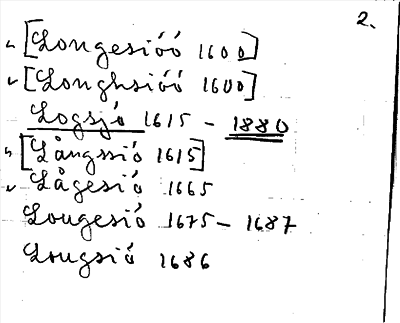 2.
[Longesióó 1600]
[Longhsióó 1600]
Logsjö 1615 - 1880
[Långssió 1615]
Lågesió 1665
Lougesió 1675 - 1687
Lougsió 1686